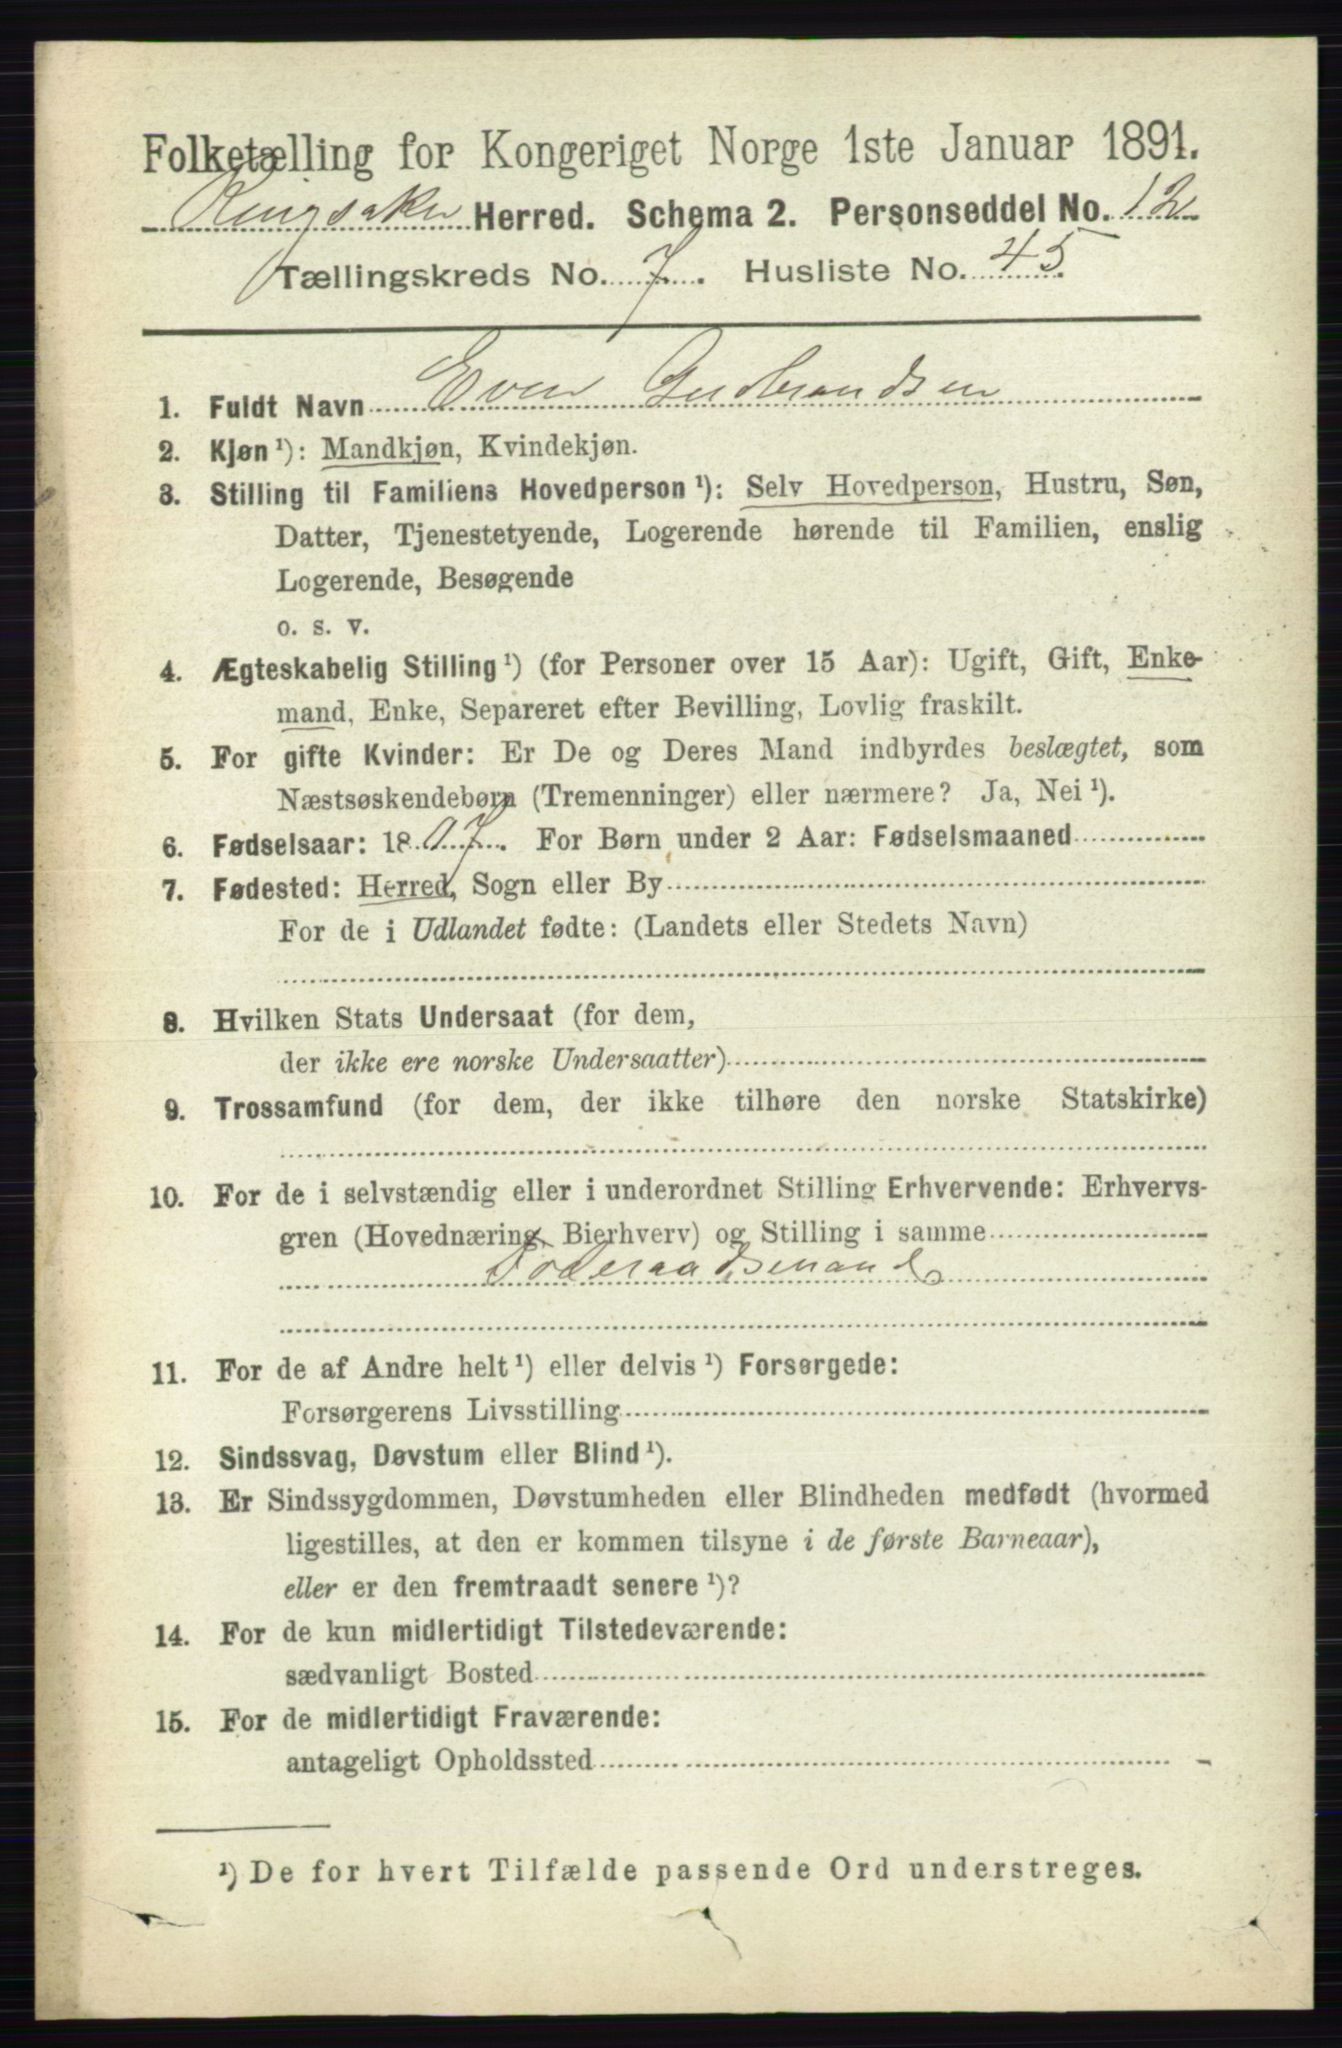 Folketælling for Kongeriget Norge 1ste Januar 1891.
Ringsaker Herred. Schema 2. Personseddel No. 12
Tællingskreds No. 7. Husliste No. 45
1. Fuldt Navn Even Gudbrandsen
2. Kjøn ¹): Mandkjøn, Kvindekjøn.
3. Stilling til Familiens Hovedperson ¹): Selv Hovedperson, Hustru, Søn,
Datter, Tjenestetyende, Logerende hørende til Familien, enslig
Logerende, Besøgende
o. s. v.
4. Ægteskabelig Stilling ¹) (for Personer over 15 Aar): Ugift, Gift, Enke-
mand, Enke, Separeret efter Bevilling, Lovlig fraskilt.
5. For gifte Kvinder: Er De og Deres Mand indbyrdes beslægtet, som
Næstsøskendebørn (Tremenninger) eller nærmere? Ja, Nei ¹).
6. Fødselsaar: 1807. For Børn under 2 Aar: Fødselsmaaned
7. Fødested: Herred, Sogn eller By
For de i Udlandet fødte: (Landets eller Stedets Navn)
8. Hvilken Stats Undersaat (for dem,
der ikke ere norske Undersaatter)
9. Trossamfund (for dem, der ikke tilhøre den norske Statskirke)
10. For de i selvstændig eller i underordnet Stilling Erhvervende: Erhvervs-
gren (Hovednæring, Bierhverv) og Stilling i samme
Foderaadsmand
11. For de af Andre helt ¹) eller delvis ¹) Forsørgede:
Forsørgerens Livsstilling
12. Sindssvag, Døvstum eller Blind ¹).
13. Er Sindssygdommen, Døvstumheden eller Blindheden medfødt (hvormed
ligestilles, at den er kommen tilsyne i de første Barneaar),
eller er den fremtraadt senere ¹)?
14. For de kun midlertidigt Tilstedeværende:
sædvanligt Bosted
15. For de midlertidigt Fraværende:
antageligt Opholdssted
¹) De for hvert Tilfælde passende Ord understreges.